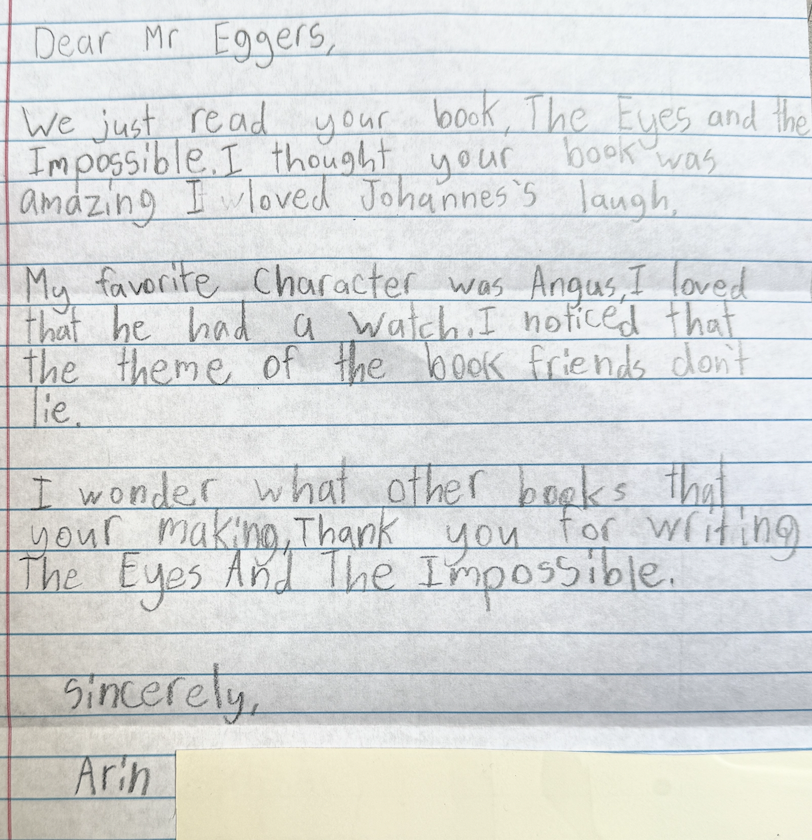 Dear Mr Eggers,
We just read your book, The Eyes and the
Impossible. I thought your book was
amazing I loved Johannes's laugh.
My favorite Character was Angus, I loved
that he had a watch. I noticed that
the theme of the book friends don't
lie.
I wonder what other books that
your making, Thank you for writing
The Eyes And The Impossible.
sincerely,
Arin